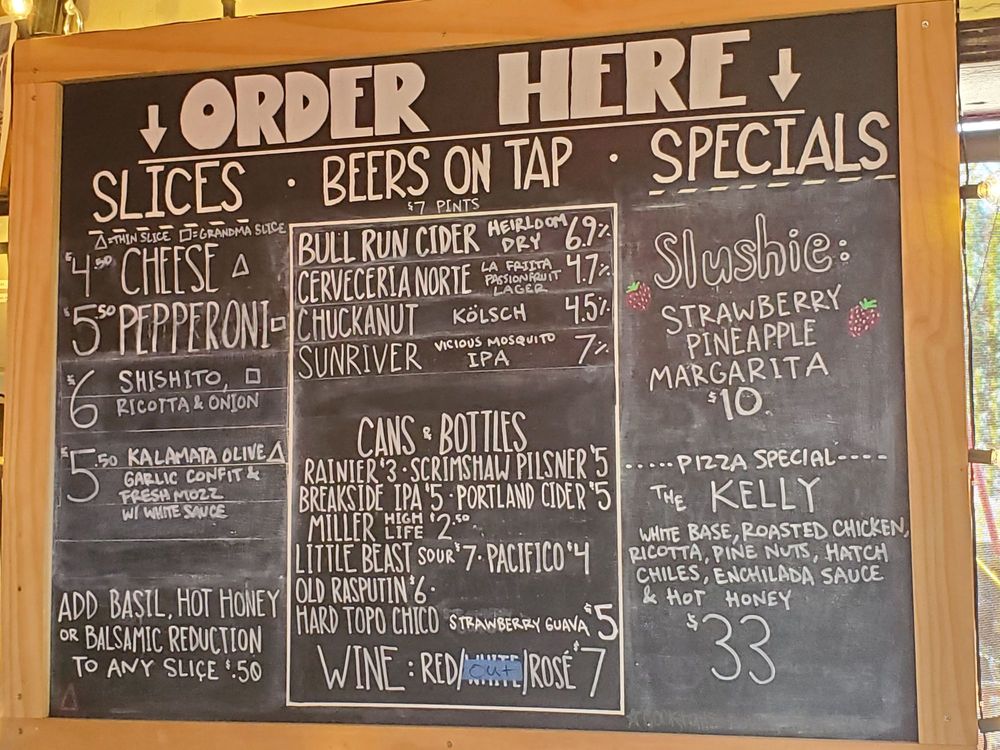 ORDER HERE
SLICES · BEERS ON TAP · SPECIALS
△=THIN SLICE □=GRANDMA SLICE
$4.50 CHEESE △
$5.50 PEPPERONI □
$6 SHISHITO, □
RICOTTA & ONION
$5.50 KALAMATA OLIVE △
GARLIC CONFIT &
FRESH MOZZ
W/ WHITE SAUCE
ADD BASIL, HOT HONEY
OR BALSAMIC REDUCTION
TO ANY SLICE $.50
$7 PINTS
BULL RUN CIDER HEIRLOOM DRY 6.9%
CERVECERIA NORTE LA FRIITA PASSIONFRUIT LAGER 4.7%
CHUCKANUT KÖLSCH 4.5%
SUNRIVER VICIOUS MOSQUITO IPA 7%
CANS & BOTTLES
RAINIER $3 · SCRIMSHAW PILSNER $5
BREAKSIDE IPA $5 · PORTLAND CIDER $5
MILLER HIGH LIFE $2.50
LITTLE BEAST SOUR $7 · PACIFICO $4
OLD RASPUTIN $6 ·
HARD TOPO CHICO STRAWBERRY GUAVA $5
WINE: RED/OUT/ROSÉ $7
Slushie:
STRAWBERRY
PINEAPPLE
MARGARITA
$10
.....PIZZA SPECIAL----
THE KELLY
WHITE BASE, ROASTED CHICKEN,
RICOTTA, PINE NUTS, HATCH
CHILES, ENCHILADA SAUCE
& HOT HONEY
$33